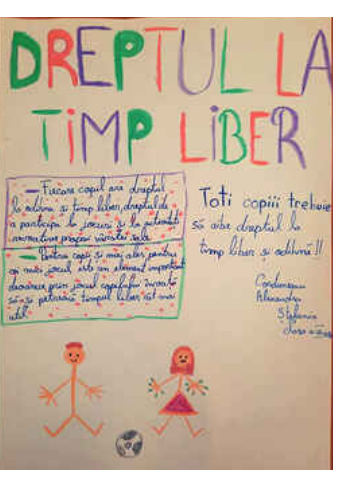 DREPTUL LA
TIMP LIBER
- Fiecare copil are dreptul
la odihnă și timp liber, dreptul de
a participa la jocuri și la activități
recreative proprii vârstei sale.
- Pentru copii și mai ales pentru
cei mici jocul este un element important
deoarece prin jocul copilului învață
să-și petreacă timpul liber cât mai
util.
Toti copiii trebuie
să aibe dreptul la
timp liber și odihnă!!
Alexandra
Ștefania
clasa a